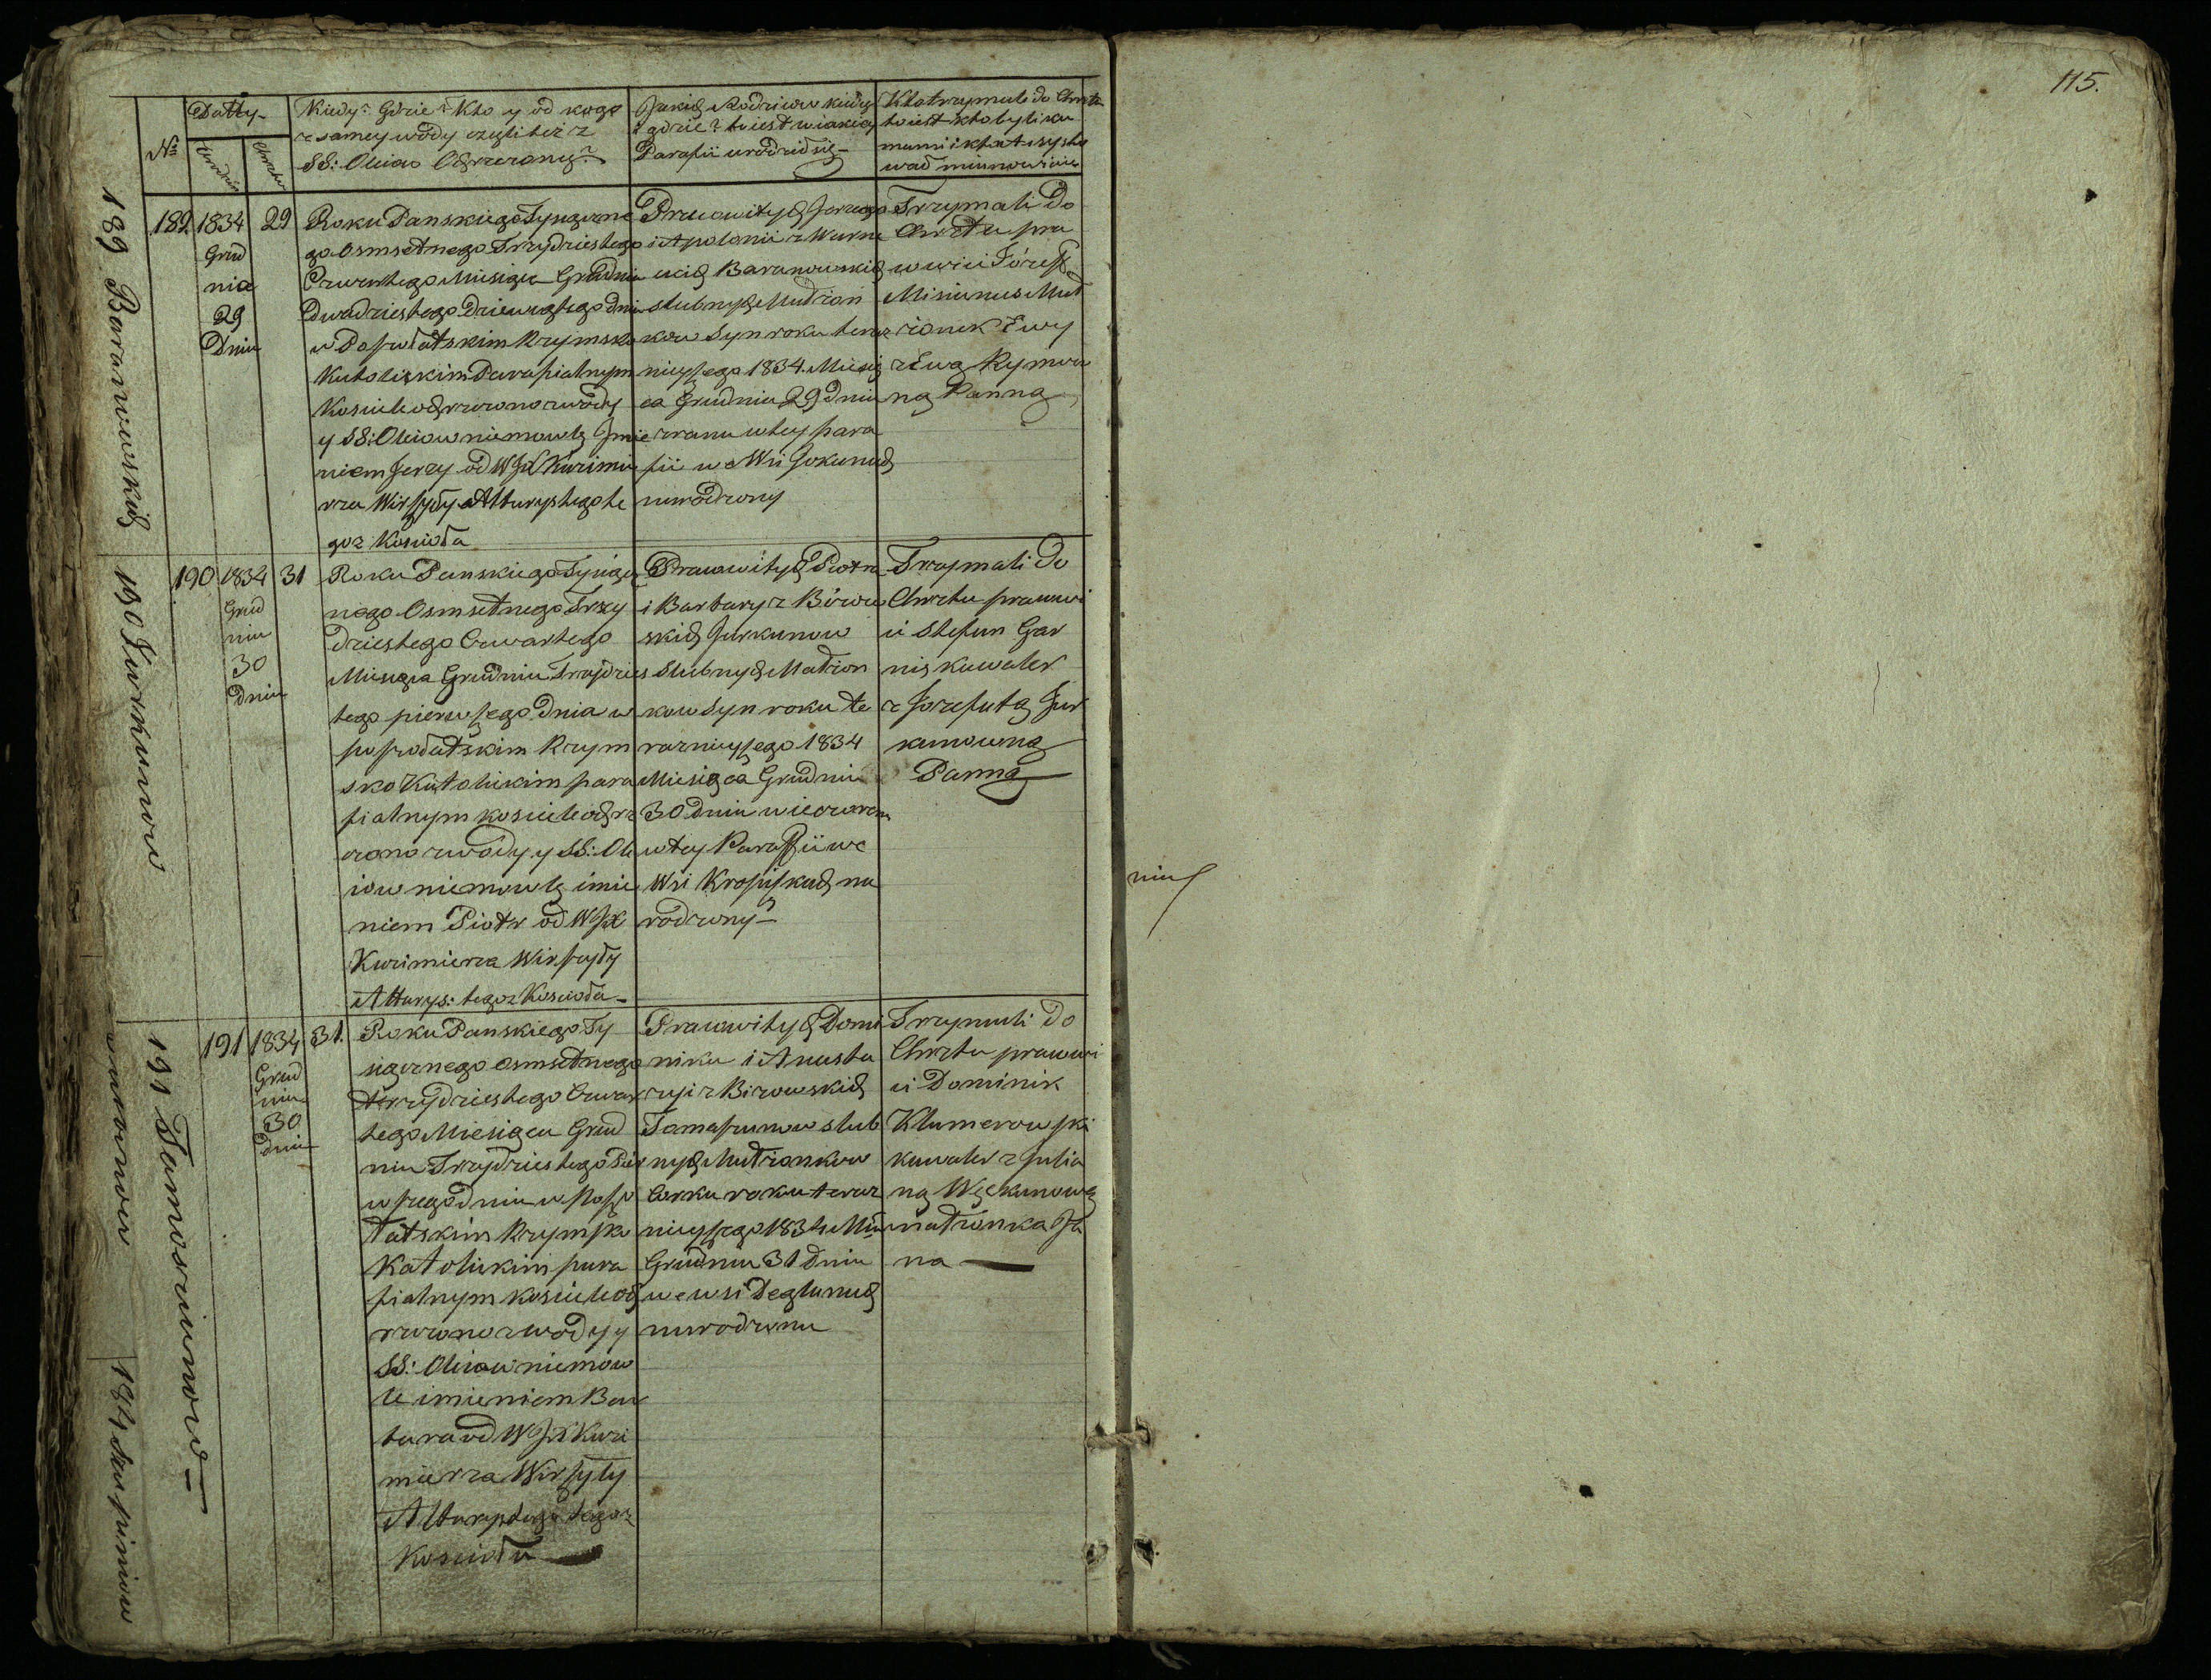 115.
Datty
Kiedy? Gdzie? Kto y od kogo
z samey wody czyli też z
SS: Oleiow Ochrzczony?
Jakich Rodzicow kiedy
i gdzie? to iest w iakiey
Parafii urodził się
Kto trzymał do Chrztu
to iest kto byli ku
mami i kto
wał mianowicie
№
Urodzin
Chrztu
189 Baranowskich
189
1834
Grud
nia
29
Dnia
29
Roku Panskiego Tysiączne
go Osmsetnego Trzydziestego
Czwartego Miesiąca Grudnia
Dwadziestego Dziewiątego dnia
w Rzymsko
Katolickim Parafialnym
Kosciele ochrzczono z wody
y SS: Oleiow niemowle Jmie
niem Jerzy od WJX Kazimie
rza Wirszyłły Altarysty te
goz Kościoła
Prawowitych Jerzego
i Apolonii z Warna
ckich Baranowskich
slubnych Małżon
kow Syn roku teraz
nieyszego 1834 Miesią
ca Grudnia 29 dnia
zrana w tey para
fii w Wsi Jokunach
narodzony
Trzymali do
Chrztu pra
cowici Józef
Misiunas Mał
zonek Ewy
z Ewą Rymow
ną Panną
190 Jurkunow
190
1834
Grud
nia
30
dnia
31
Roku Panskiego Tysiącz
nego Osmsetnego Trzy
dziestego Czwartego
Miesiąca Grudnia Trzydzies
tego pierwszego dnia w
Rzym
sko Katolickim para
fialnym kosciele ochrz
czono z wody y SS: Ole
iow niemowle imie
niem Piotr od WJX
Kazimierza Wirszyłły
Altarys: tegoz Kościoła
Prawowitych Piotra
i Barbary z Birow
skich Jurkunow
Slubnych Małżon
kow Syn roku te
raznieyszego 1834
Miesiąca Grudnia
30 dnia wieczorem
w tey Paraffii we
Wsi Kropiszkach na
rodzony
Trzymali do
Chrztu pracowi
ci Stefan Gar
nis kawaler
z Jozefatą Jur
kunowną
Panną
191 Tamoszunow
191
1834
Grud
nia
30
dnia
31.
Roku Panskiego Ty
siącznego osmsetnego
trzydziestego Czwar
tego Miesiąca Grud
nia Trzydziestego Pier
wszego dnia w
Rzymsko
Katolickim para
fialnym kosciele och
rzczono z wody y
SS: Oleiow niemow
le imieniem Bar
bara od WJX Kazi
mierza Wirszyłły
Altarystego tegoz
Kościoła
Prawowitych Domi
nika i Anasta
zyi z Birowskich
Tamaszunow slub
nych Małżonkow
Corka roku teraz
nieyszego 1834 Mie
Grudnia 31 dnia
we wsi Deglunach
narodzona
Trzymali do
Chrztu pracowi
ci Dominik
Klumerowski
kawaler z Julia
ną Węckunową
małżonka Ja
na